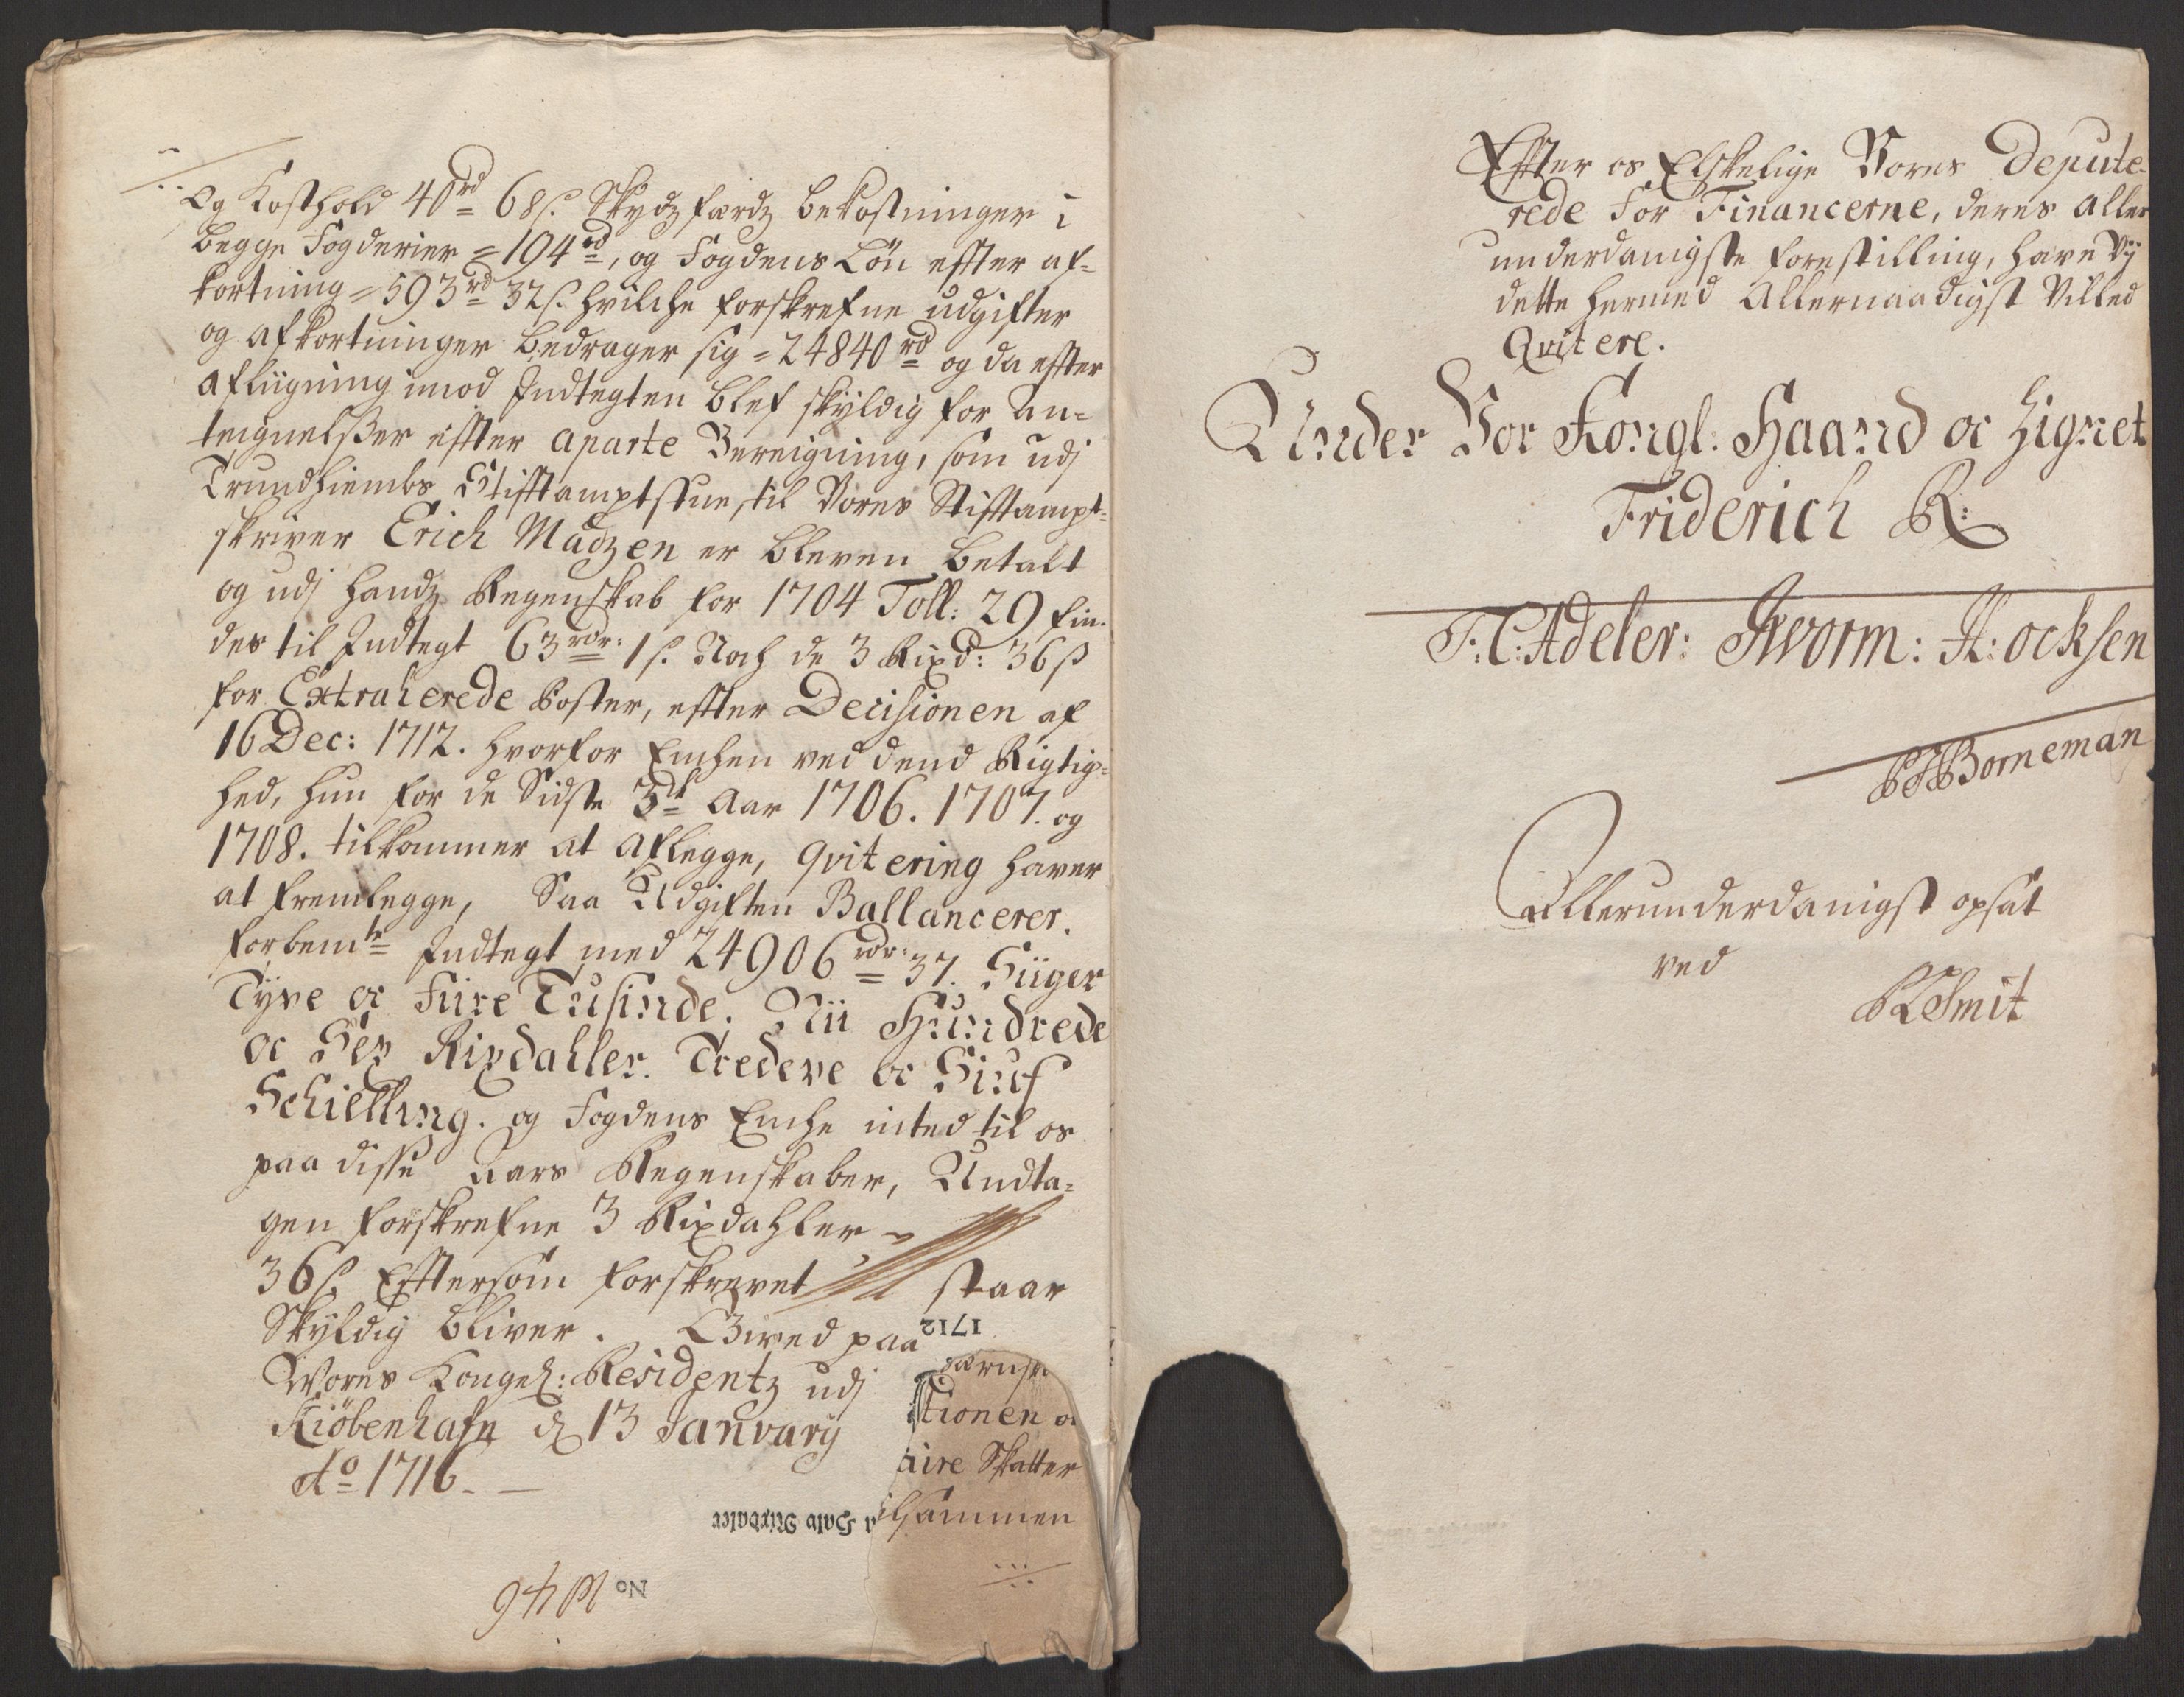 Og Kosthold 40 rd 68 s. Skydzferdz bekostninger i
begge Fogderier = 194 rd, og Fogdens Løn effter af-
kortning = 593 rd 32 s. hvilche forskrefne udgifter
og afkortninger bedrager sig = 24840 rd og da effter
afliigning imod Indtegten blef skyldig for An-
tegnelsser effter aparte Bereigning, som udj
Trundhiembs Stifftamptstue, til Vores Stifftampt-
skriver Erich Madzen er bleven betalt
og udj handz Regenskab for 1704 Foll: 29 fin-
des til Indtegt 63 rdr: 1 s. Noch de 3 Rixd: 36 s
for Extraherede Poster, effter Decisionen af
16 Dec: 1712. hvorfor Enchen ved dend Rigtig-
hed, hun for de Sidste 3de Aar 1706. 1707. og
1708. tilkommer at aflegge, qvitering haver
at fremlegge, Saa Udgiften Ballancerer.
forbemte Indtegt med 24906 rdr: 37. Siiger
Tyve oc Fiire Tusinde. Nii Hundrede
oc Sex Rixdahler. Tredeve oc Siuf
Schielling. og Fogdens Enche inted til os
paa disse Aars Regenskaber, Undta-
gen forskrefne 3 Rixdahler
36 s. Efftersom forskrevet staar
Skyldig bliver. Gived paa
1712
Vores Kongel: Residentz udj
Kiöbenhafn d 13 Janvarij
Ao 1716.
tionen o
aire Skatter
ilsammen
a Halv Rixdaler
No
46
Effter os Elskelige Vores Depute-
rede for Financerne, deres aller
underdanigste forestilling, have Vj
dette hermed Allernaadigst Villed
Qvitere.
Under Vor Kongl. Haand oc Zignet
Friderich R:
F: C: Adeler: JWorm: H: ocksen
Borneman
Allerunderdanigst opsat
ved
Smit